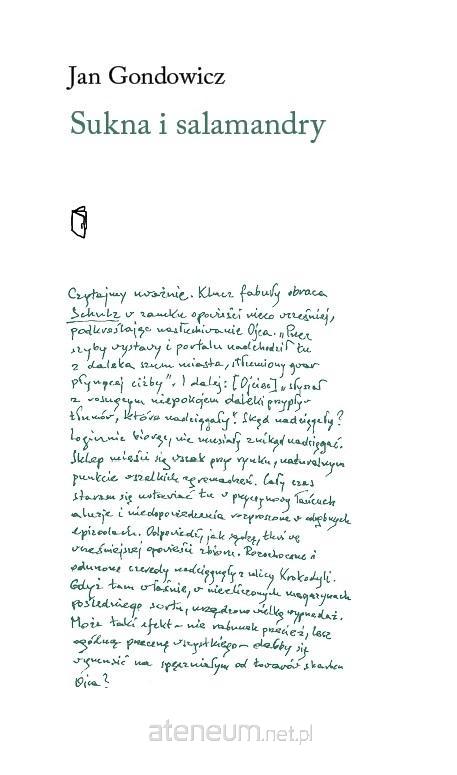 Jan Gondowicz
Sukna i salamandry
Czytajmy uważnie. Klucz fabuły obraca
Schulz w zamku opowieści nieco wcześniej,
podkreślając nasłuchiwanie Ojca. „Przez
szyby wystawy i portalu nadchodził tu
z daleka szum miasta, stłumiony gwar
płynącej ciżby”. I dalej: [Ojciec] „słyszał
z rosnącym niepokojem daleki przypływ
tłumów, które nadciągały”. Skąd nadciągały?
Logicznie biorąc, nie musiały znikąd nadciągać.
Sklep mieści się wszak przy rynku, naturalnym
punkcie wszelkich zgromadzeń. Cały czas
staram się odtwarzać tu przyczynowy łańcuch
aluzje i niedopowiedzenia rozproszone w odrębnych
epizodach. Odpowiedź, jak sądzę, tkwi we
wcześniejszej opowieści zbioru. Rozochocone i
odurzone czeredy nadciągnęły z ulicy Krokodyli.
Gdyż tam właśnie, w niezliczonych magazynach
pośledniego sortu, urządzono wielką wyprzedaż.
Może taki efekt – nie rabunek przecież, lecz
ogólną przecenę wszystkiego – dałoby się
wymusić na spęczniałym od towarów skarbcu
Ojca?
ateneum.net.pl